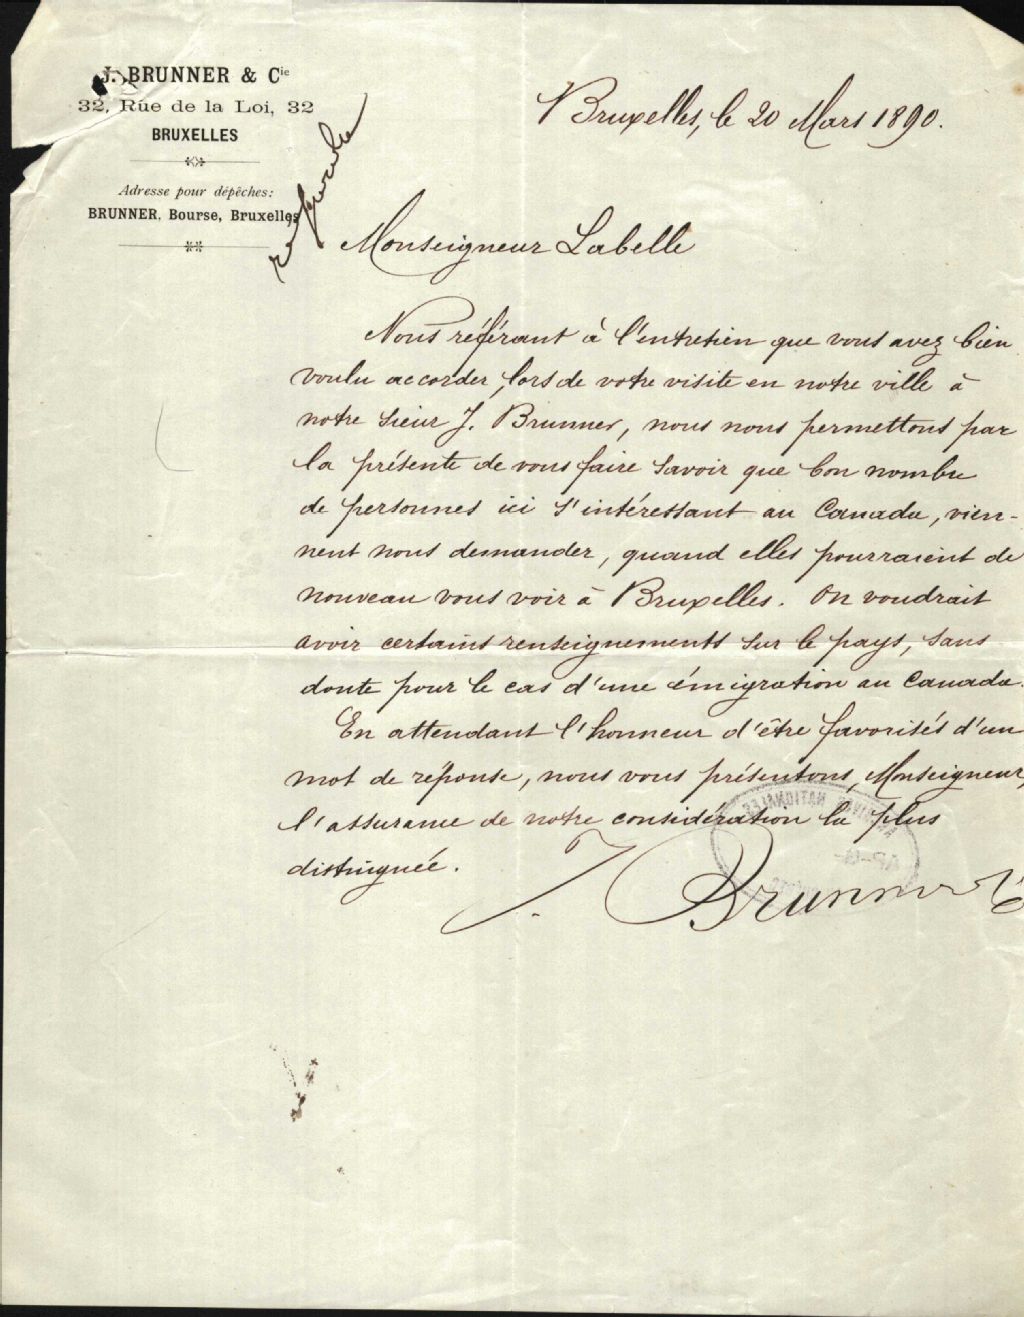 J. BRUNNER & Cie
32, Rue de la Loi, 32
BRUXELLES
Adresse pour dépêches:
BRUNNER, Bourse, Bruxelles
Bruxelles, le 20 Mars 1890.
Monseigneur Labelle
Nous référant à l'entretien que vous avez bien
voulu accorder, lors de votre visite en notre ville à
notre sieur J. Brunner, nous nous permettons par
la présente de vous faire savoir que bon nombre
de personnes ici s'intéressant au Canada, vien-
nent nous demander, quand elles pourraient de
nouveau vous voir à Bruxelles. On voudrait
avoir certains renseignements sur le pays, sans
doute pour le cas d'une émigration au Canada.
En attendant l'honneur d'être favorisés d'un
mot de réponse, nous vous présentons, Monseigneur,
l'assurance de notre considération la plus
distinguée.
J. Brunner & Cie
ARCHIVES NATIONALES
AP-G-